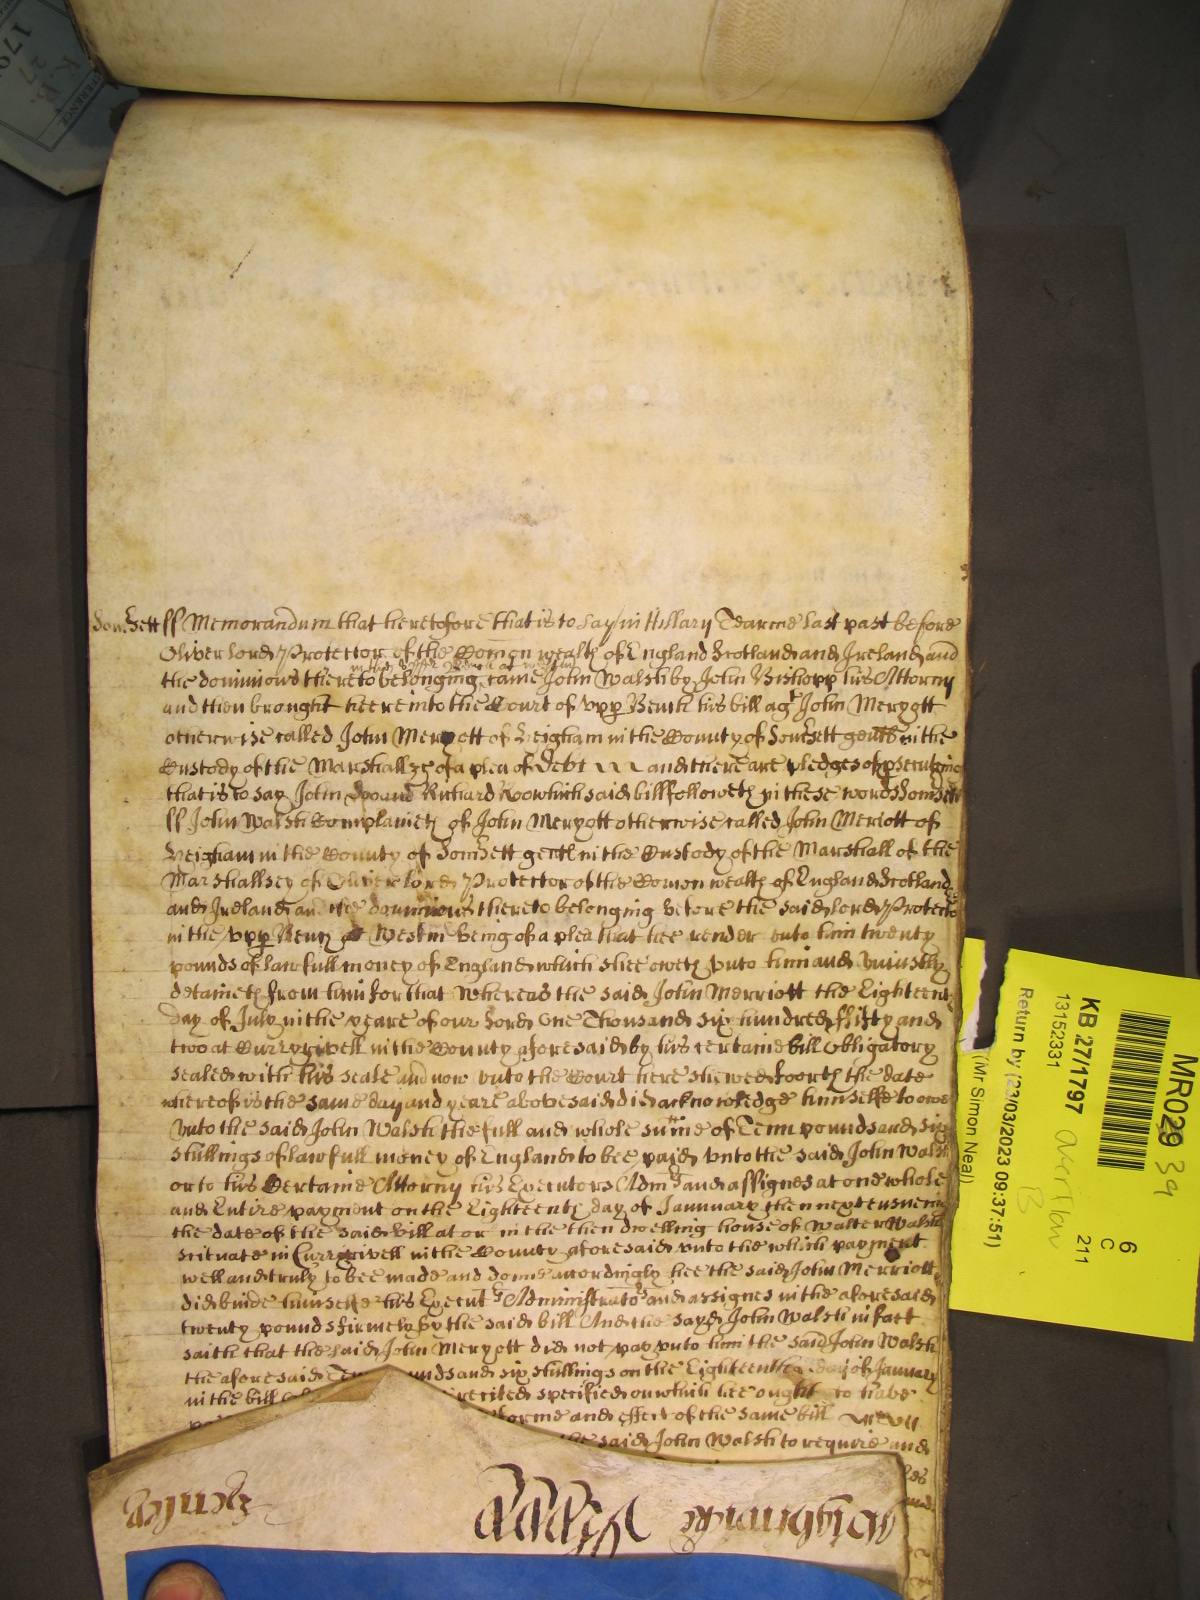 Somsett ss Memorandum that heretofore that is to say in Hillary Tearme last past before
Oliver lord Protector of the Comon wealth of England Scotland and Ireland and
in the Upper Bench at Westm
the dominions thereto belonging came John Walsh by John Bishopp his Attorny
and then brought heere into the Court of Upp Bench his bill agt John Meryott
otherwise called John Meryott of in the County of Somsett gentl in the
Custody of the Marshall &c of a plea of Debt and there are pledges of psecuting
that is to say John Doe and Richard Roo which said bill followeth in these words Somsett
ss John Walsh Complaineth of John Meryott otherwise called John Meriott of
in the County of Somsett gentl in the Custody of the Marshall of the
Marshallsey of Oliver lord Protector of the Comon wealth of England Scotland
and Ireland and the dominions thereto belonging before the said lord Protector
in the upp Bench at Westm being of a plea that hee render unto him twenty
pounds of lawfull money of England which hee oweth unto him and uniustly
detaineth from him for that Whereas the said John Merriott the Eighteenth
day of July in the yeare of our Lord One Thousand six hundred fifty and
two at Curryrivell in the County aforesaid by his certaine bill Obligatory
sealed with his seale and now unto the Court here shewed foorth the date
whereof is the same day and yeare abovesaid did acknowledge himselfe to owe
unto the said John Walsh the full and whole sume of Tenn pounds and six
shillings of lawfull money of England to bee paid unto the said John Walsh
or to his Certaine Attorny his Executors Admrs and assignes at one whole
and Entire payment on the Eighteenth day of Januuary then next ensueing
the date of the said bill at or in the then dwelling house of Walter Walsh
scituate in Curryrivell in the County aforesaid unto the which payment
well and truly to bee made and donne accordingly hee the said John Merriott
did binde himselfe his Executrs Administrators and assignes in the aforesaid
twenty pounds firmely by the said bill And the sayd John Walsh in fact
saith that the said John Meryott did not pay unto him the said John Walsh
the aforesaid Ten pounds and six shillings on the Eighteenth day of January
in the bill recited specified on which hee ought to have
forme and effect of the same bill
the said John Walsh to require and
MR029 39
6
C
211
KB 27/1797
overflow
B
13152331
Return by (23/03/2023 09:37:51)
(Mr Simon Neal)